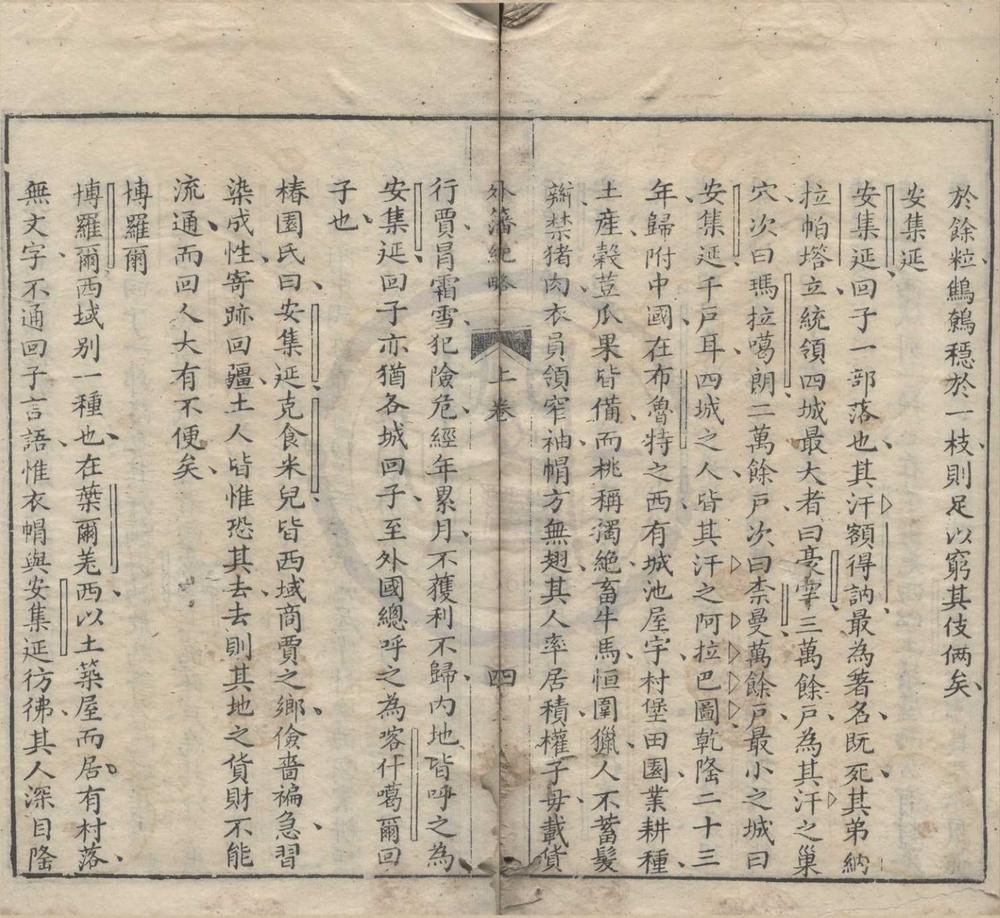 於餘粒鷦鷯穩於一枝則足以窮其伎倆矣
安集延
安集延回子一部落也其汗額得訥最為著名既死其弟納
拉帕塔立統領四城最大者曰豪罕三萬餘戶為其汗之巢
穴次曰瑪拉噶朗二萬餘戶次曰柰曼萬餘戶最小之城曰
安集延千戶耳四城之人皆其汗之阿拉巴圖乾隆二十三
年歸附中國在布魯特之西有城池屋宇村堡田園業耕種
土產穀荳瓜果皆備而桃稱獨絶畜牛馬恒圍獵人不蓄髮
辮禁猪肉衣員領窄袖帽方無翅其人率居積權子毋載貨
外藩紀略 上卷 四
行賈冐霜雪犯險危經年累月不獲利不歸內地皆呼之為
安集延回子亦猶各城回子至外國總呼之為喀什噶爾回
子也
椿園氏曰安集延克食米兒皆西域商賈之鄉儉嗇褊急習
染成性寄跡回疆土人皆惟恐其去去則其地之貨財不能
流通而回人大有不便矣
博羅爾
博羅爾西域别一種也在葉爾羌西以土築屋而居有村落
無文字不通回子言語惟衣帽與安集延彷彿其人深目隆